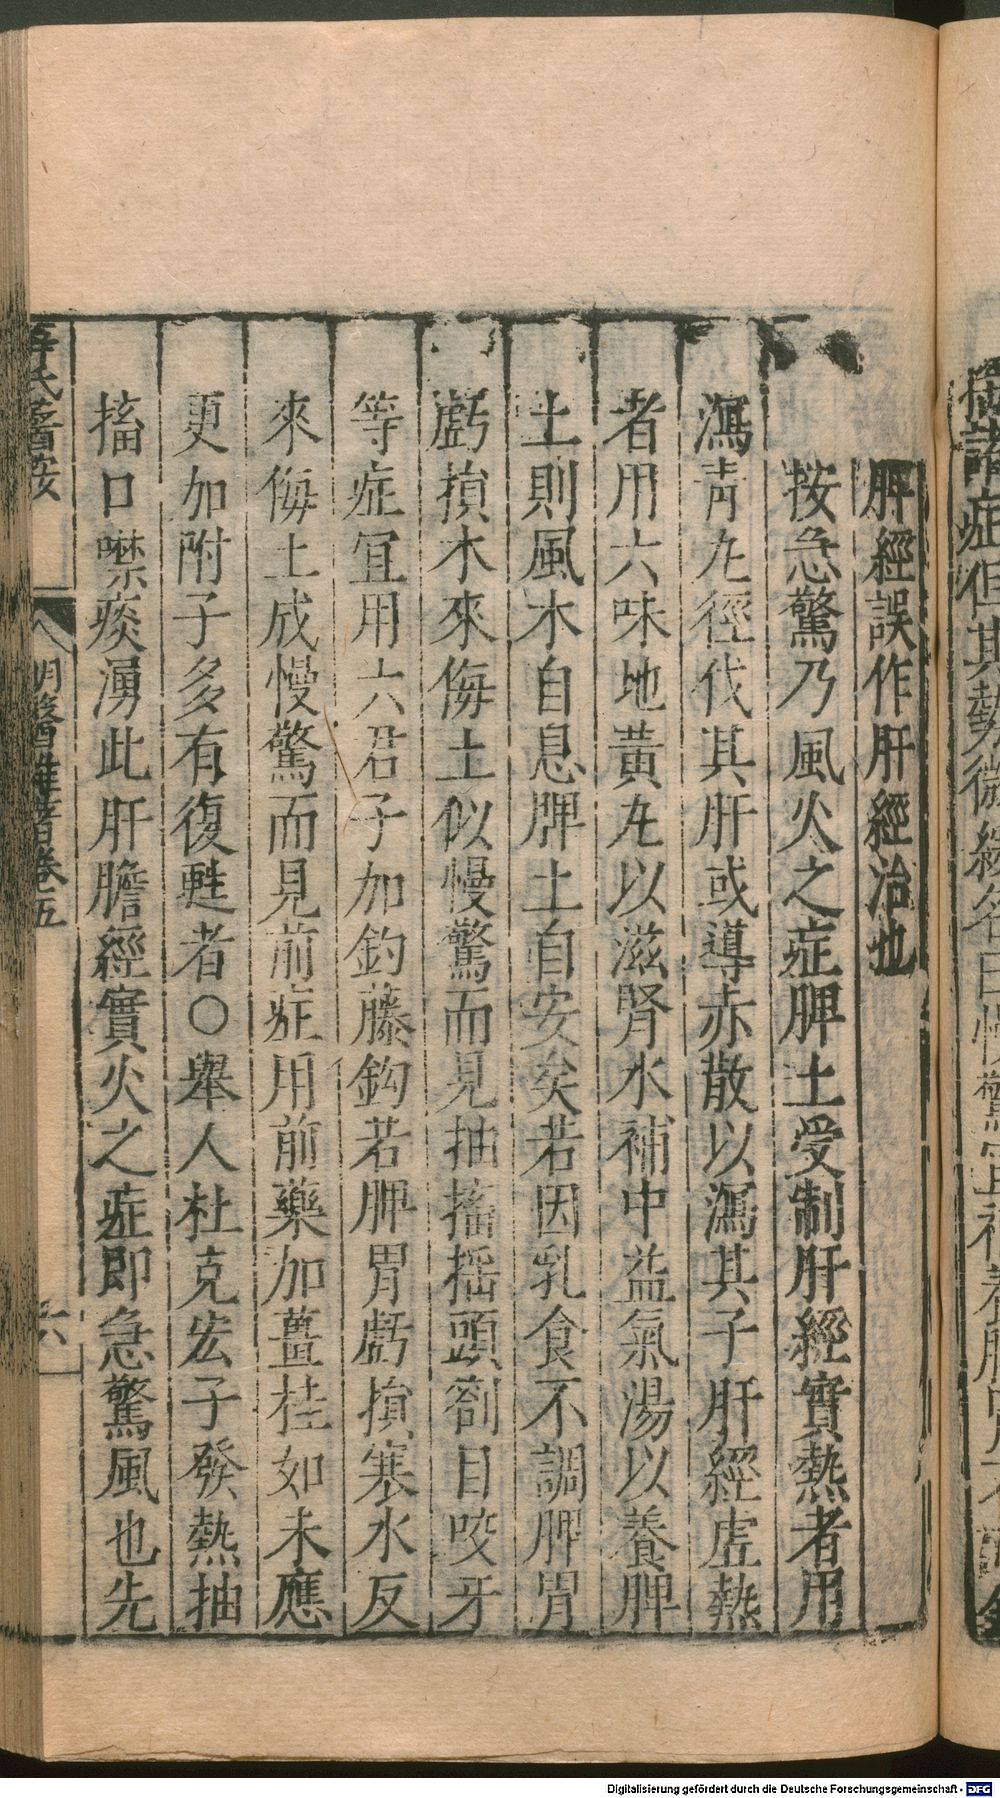 肝經誤作肝經治也
按急驚乃風火之症脾土受制肝經實熱者用
瀉青丸徑伐其肝或導赤散以瀉其子肝經虛熱
者用六味地黃丸以滋腎水補中益氣湯以養脾
土則風木自息脾土自安矣若因乳食不調脾胃
虧損木來侮土似慢驚而見抽搐搖頭劄目咬牙
等症宜用六君子加釣藤鈎若脾胃虧損寒水反
來侮土成慢驚而見前症用前藥加薑桂如未應
更加附子多有復甦者○舉人杜克宏子發熱抽
搐口噤痰湧此肝膽經實火之症即急驚風也先
薛氏醫按
明醫雜著卷五
六
症但其勢微緩名曰慢驚
Digitalisierung gefördert durch die Deutsche Forschungsgemeinschaft - DFG